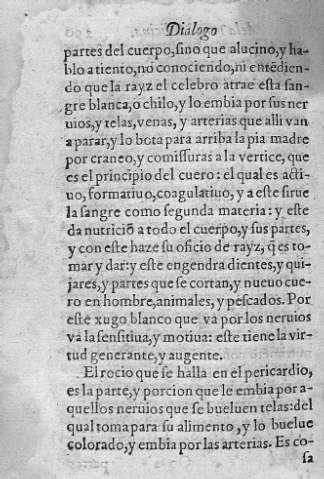 Dialogo
partes del cuerpo, sino que alucino, y ha-
blo a tiento, no conociendo, ni entẽdien-
do que la rayz el celebro atrae esta san-
gre blanca, o chilo, y lo embia por sus ner
uios, y telas, venas, y arterias que alli van
a parar, y lo bota para arriba la pia madre
por craneo, y comissuras a la vertice, que
es el principio del cuero: el qual es acti-
uo, formatiuo, coagulatiuo, y a este sirue
la sangre como segunda materia: y este
da nutriciõ a todo el cuerpo, y sus partes,
y con este haze su oficio de rayz, q̃ es to-
mar y dar: y este engendra dientes, y qui-
jares, y partes que se cortan, y nueuo cue-
ro en hombre, animales, y pescados. Por
este xugo blanco que va por los neruios
va la sensitiua, y motiua: este tiene la vir-
tud generante, y augente.
El rocio que se halla en el pericardio,
es la parte, y porcion que le embia por a-
quellos neruios que se bueluen telas: del
qual toma para su alimento, y lo buelue
colorado, y embia por las arterias. Es co-
sa